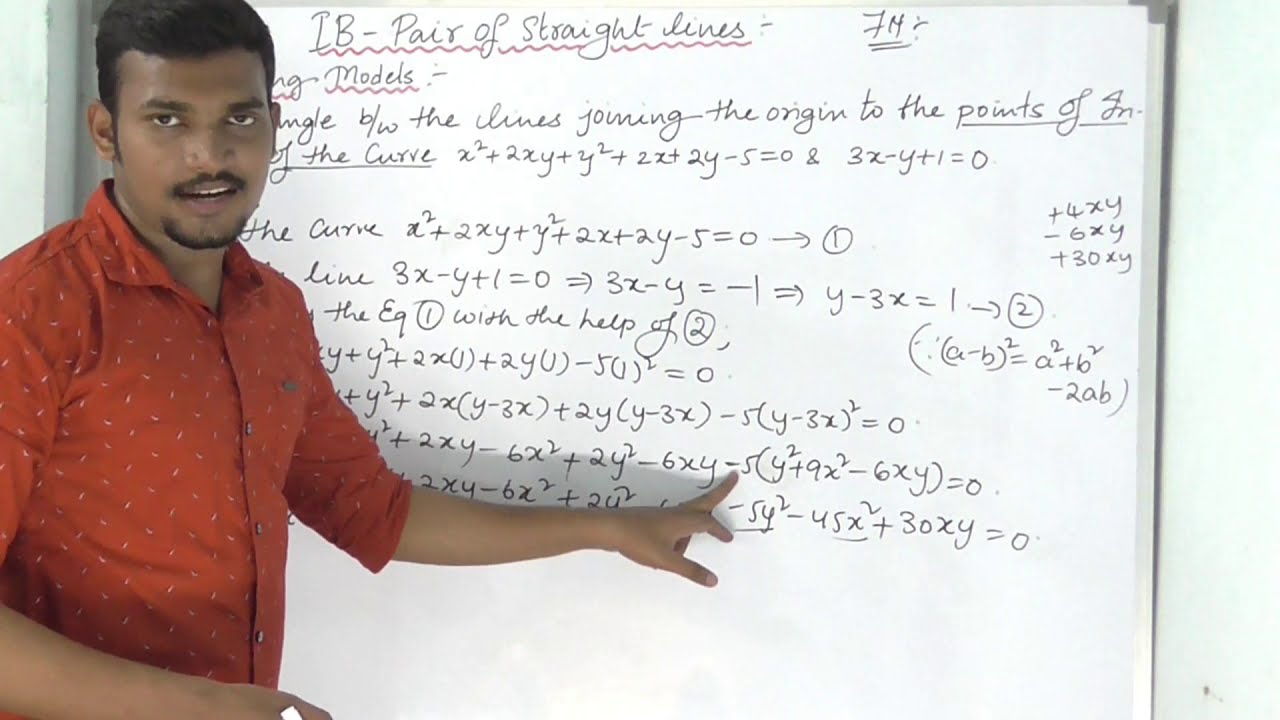 IB - Pair of Straight lines :- 7M :-
Models :-
b/w the lines joining the origin to the points of In.
of the Curve x²+2xy+y²+2x+2y-5=0 & 3x-y+1=0.
the curve x²+2xy+y²+2x+2y-5=0 → ①
line 3x-y+1=0 ⇒ 3x-y = -1 ⇒ y-3x = 1 → ②
the Eq ① with the help of ②;
y+y²+2x(1)+2y(1)-5(1)²=0
+y²+2x(y-3x)+2y(y-3x)-5(y-3x)²=0.
y²+2xy-6x²+2y²-6xy-5(y²+9x²-6xy)=0.
+2xy-6x²+2y² -5y²-45x²+30xy=0.
+4xy
-6xy
+30xy
(∵(a-b)²=a²+b²
-2ab)